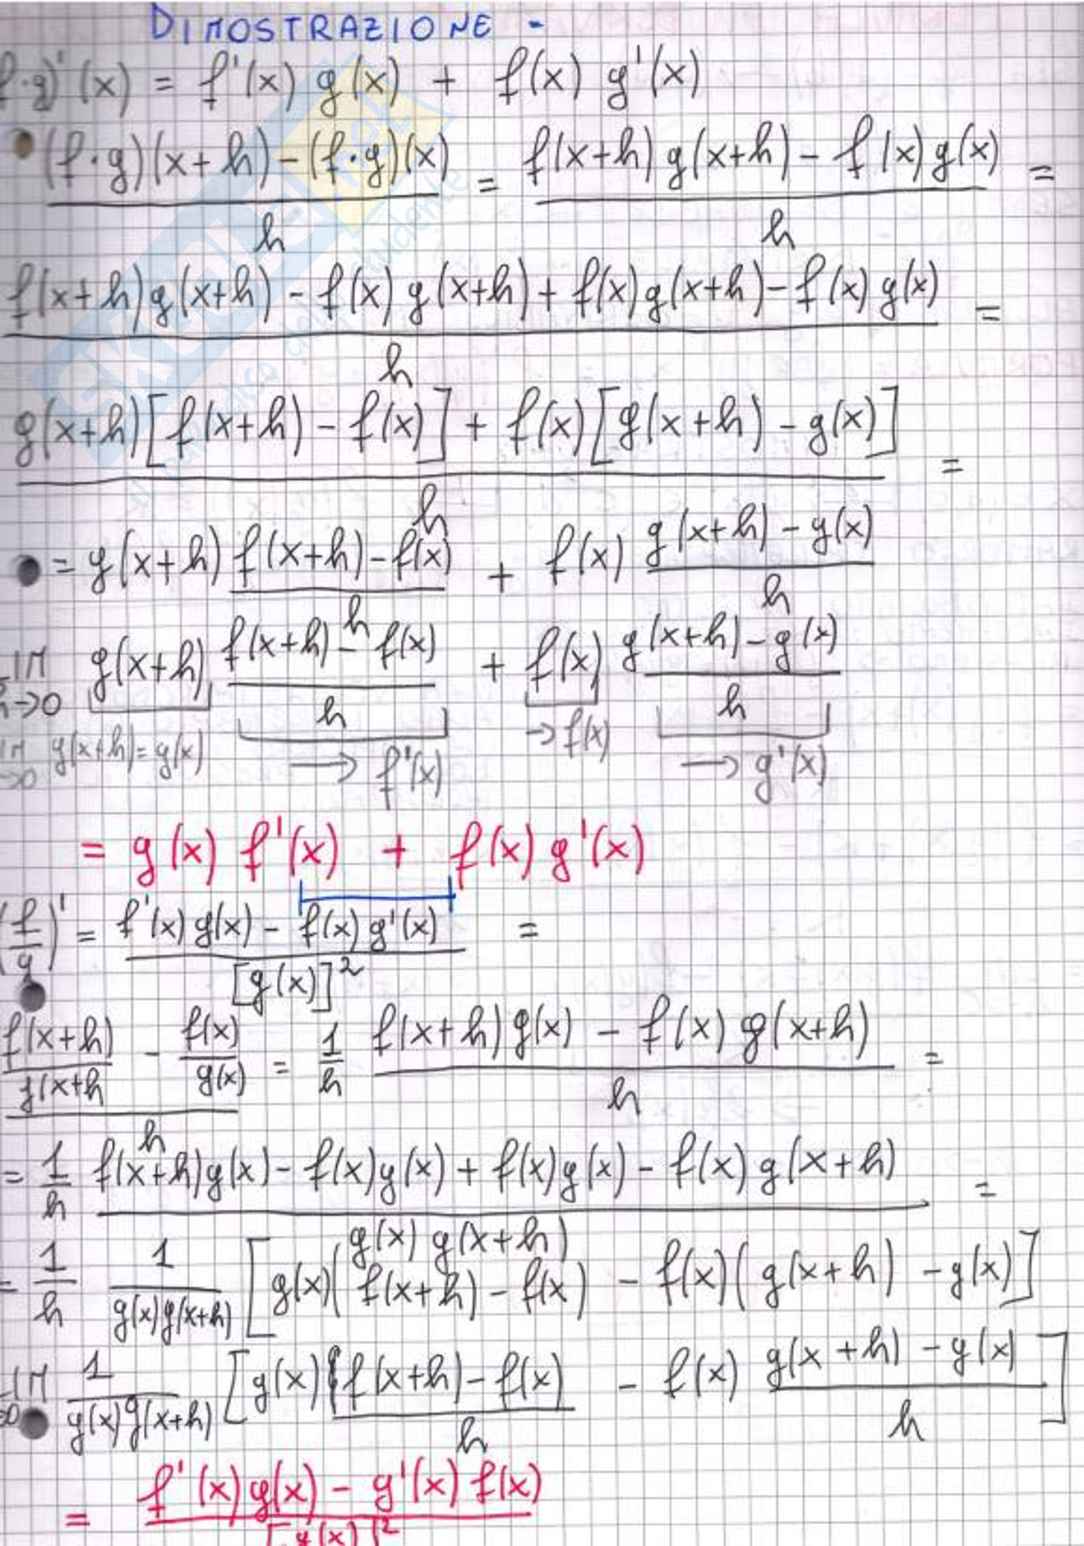 DIMOSTRAZIONE -
f·g)'(x) = f'(x) g(x) + f(x) g'(x)
(f·g)(x+h) - (f·g)(x) / h = f(x+h) g(x+h) - f(x) g(x) / h =
f(x+h) g(x+h) - f(x) g(x+h) + f(x) g(x+h) - f(x) g(x) / h =
g(x+h) [f(x+h) - f(x)] + f(x) [g(x+h) - g(x)] / h =
= g(x+h) f(x+h) - f(x) / h + f(x) g(x+h) - g(x) / h
LIM h→0 g(x+h) f(x+h) - f(x) / h + f(x) g(x+h) - g(x) / h
LIM →0 g(x+h) = g(x) → f'(x) → f(x) → g'(x)
= g(x) f'(x) + f(x) g'(x)
(f/g)' = f'(x) g(x) - f(x) g'(x) / [g(x)]² =
f(x+h) / g(x+h - f(x) / g(x) / h = 1/h f(x+h) g(x) - f(x) g(x+h) / h =
= 1/h f(x+h) g(x) - f(x) g(x) + f(x) g(x) - f(x) g(x+h) / g(x) g(x+h) =
= 1/h 1 / g(x) g(x+h) [g(x) (f(x+h) - f(x)) - f(x) (g(x+h) - g(x)]
LIM →0 1 / g(x) g(x+h) [g(x) (f(x+h) - f(x) / h - f(x) g(x+h) - g(x) / h]
= f'(x) g(x) - g'(x) f(x) / [g(x)]²